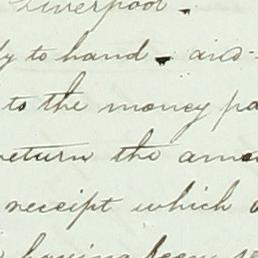 Liverpool.
to hand. and
to the money
return the
receipt which
having been